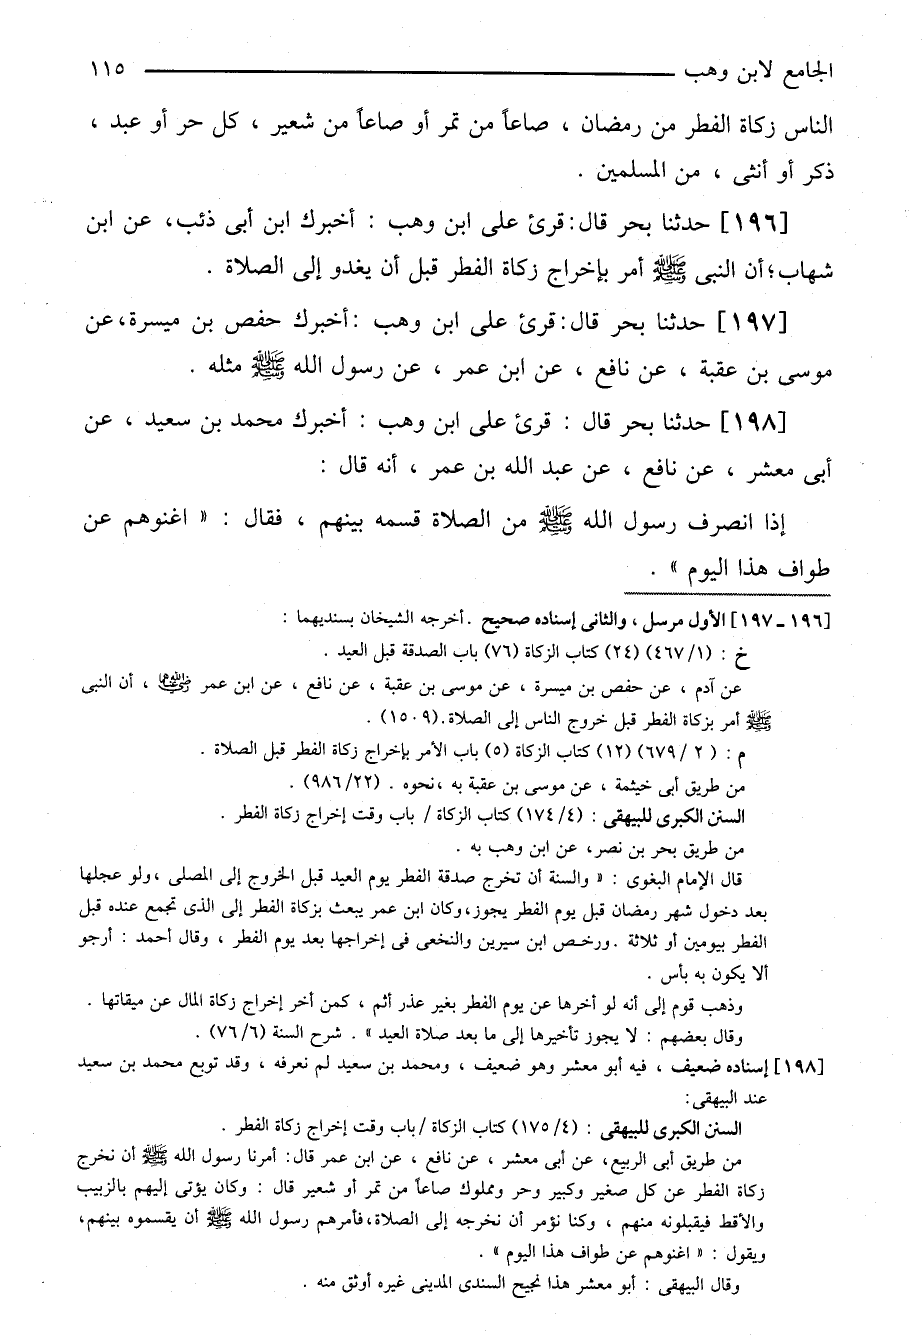 الجامع لابن وهب ١١٥
الناس زكاة الفطر من رمضان ، صاعاً من تمر أو صاعاً من شعير ، كل حر أو عبد ،
ذكر أو أنثى ، من المسلمين .
[١٩٦] حدثنا بحر قال : قرئ على ابن وهب : أخبرك ابن أبى ذئب، عن ابن
شهاب؛ أن النبى ﷺ أمر بإخراج زكاة الفطر قبل أن يغدو إلى الصلاة .
[١٩٧] حدثنا بحر قال : قرئ على ابن وهب : أخبرك حفص بن ميسرة، عن
موسى بن عقبة ، عن نافع ، عن ابن عمر ، عن رسول الله ﷺ مثله .
[١٩٨] حدثنا بحر قال : قرئ على ابن وهب : أخبرك محمد بن سعيد ، عن
أبى معشر ، عن نافع ، عن عبد الله بن عمر ، أنه قال :
إذا انصرف رسول الله ﷺ من الصلاة قسمه بينهم ، فقال : « اغنوهم عن
طواف هذا اليوم » .
[١٩٦ - ١٩٧] الأول مرسل ، والثانى إسناده صحيح . أخرجه الشيخان بسنديهما :
خ : (١/ ٤٦٧) (٢٤) كتاب الزكاة (٧٦) باب الصدقة قبل العيد .
عن آدم ، عن حفص بن ميسرة ، عن موسى بن عقبة ، عن نافع ، عن ابن عمر رضي الله عنهما ، أن النبى
ﷺ أمر بزكاة الفطر قبل خروج الناس إلى الصلاة. (١٥٠٩) .
م : (٢ / ٦٧٩) (١٢) كتاب الزكاة (٥) باب الأمر بإخراج زكاة الفطر قبل الصلاة .
من طريق أبى خيثمة ، عن موسى بن عقبة به ، نحوه . (٢٢/ ٩٨٦) .
السنن الكبرى للبيهقى : (٤/ ١٧٤) كتاب الزكاة / باب وقت إخراج زكاة الفطر .
من طريق بحر بن نصر، عن ابن وهب به .
قال الإمام البغوى : « والسنة أن تخرج صدقة الفطر يوم العيد قبل الخروج إلى المصلى ، ولو عجلها
بعد دخول شهر رمضان قبل يوم الفطر يجوز، وكان ابن عمر يبعث بزكاة الفطر إلى الذى تجمع عنده قبل
الفطر بيومين أو ثلاثة . ورخص ابن سيرين والنخعى فى إخراجها بعد يوم الفطر ، وقال أحمد : أرجو
ألا يكون به بأس .
وذهب قوم إلى أنه لو أخرها عن يوم الفطر بغير عذر أثم ، كمن أخر إخراج زكاة المال عن ميقاتها .
وقال بعضهم : لا يجوز تأخيرها إلى ما بعد صلاة العيد » . شرح السنة (٦/ ٧٦) .
[١٩٨] إسناده ضعيف ، فيه أبو معشر وهو ضعيف ، ومحمد بن سعيد لم نعرفه ، وقد توبع محمد بن سعيد
عند البيهقى :
السنن الكبرى للبيهقى : (٤/ ١٧٥) كتاب الزكاة / باب وقت إخراج زكاة الفطر .
من طريق أبى الربيع، عن أبى معشر ، عن نافع ، عن ابن عمر قال: أمرنا رسول الله ﷺ أن نخرج
زكاة الفطر عن كل صغير وكبير وحر ومملوك صاعاً من تمر أو شعير قال : وكان يؤتى إليهم بالزبيب
والأقط فيقبلونه منهم ، وكنا نؤمر أن نخرجه إلى الصلاة، فأمرهم رسول الله ﷺ أن يقسموه بينهم،
ويقول : « اغنوهم عن طواف هذا اليوم » .
وقال البيهقى : أبو معشر هذا نجيح السندى المدينى غيره أوثق منه .